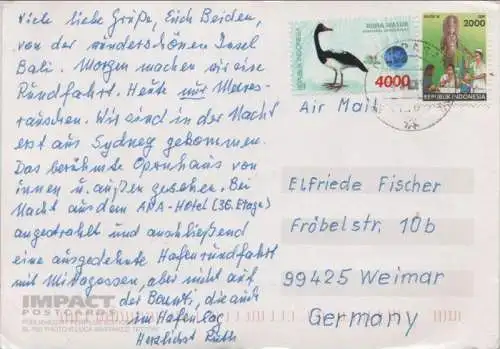 Viele liebe Grüße, Euch Beiden,
von der wunderschönen Insel
Bali. Morgen machen wir eine
Rundfahrt. Heute nur Meeres-
rauschen. Wir sind in der Nacht
erst aus Sydney gekommen.
Das berühmte Opernhaus von
innen u. außen gesehen. Bei
Nacht aus dem ANA-Hotel (36. Etage)
angestrahlt und anschließend
eine ausgedehnte Hafenrundfahrt
mit Mittagessen, aber nicht auf
der Bounti, die auch
im Hafen lag
Herzlichst Ruth
IMPACT
POSTCARDS
REPUBLIK INDONESIA
4000
2000
REPUBLIK INDONESIA
Air Mail
Elfriede Fischer
Fröbelstr. 10b
99425 Weimar
Germany